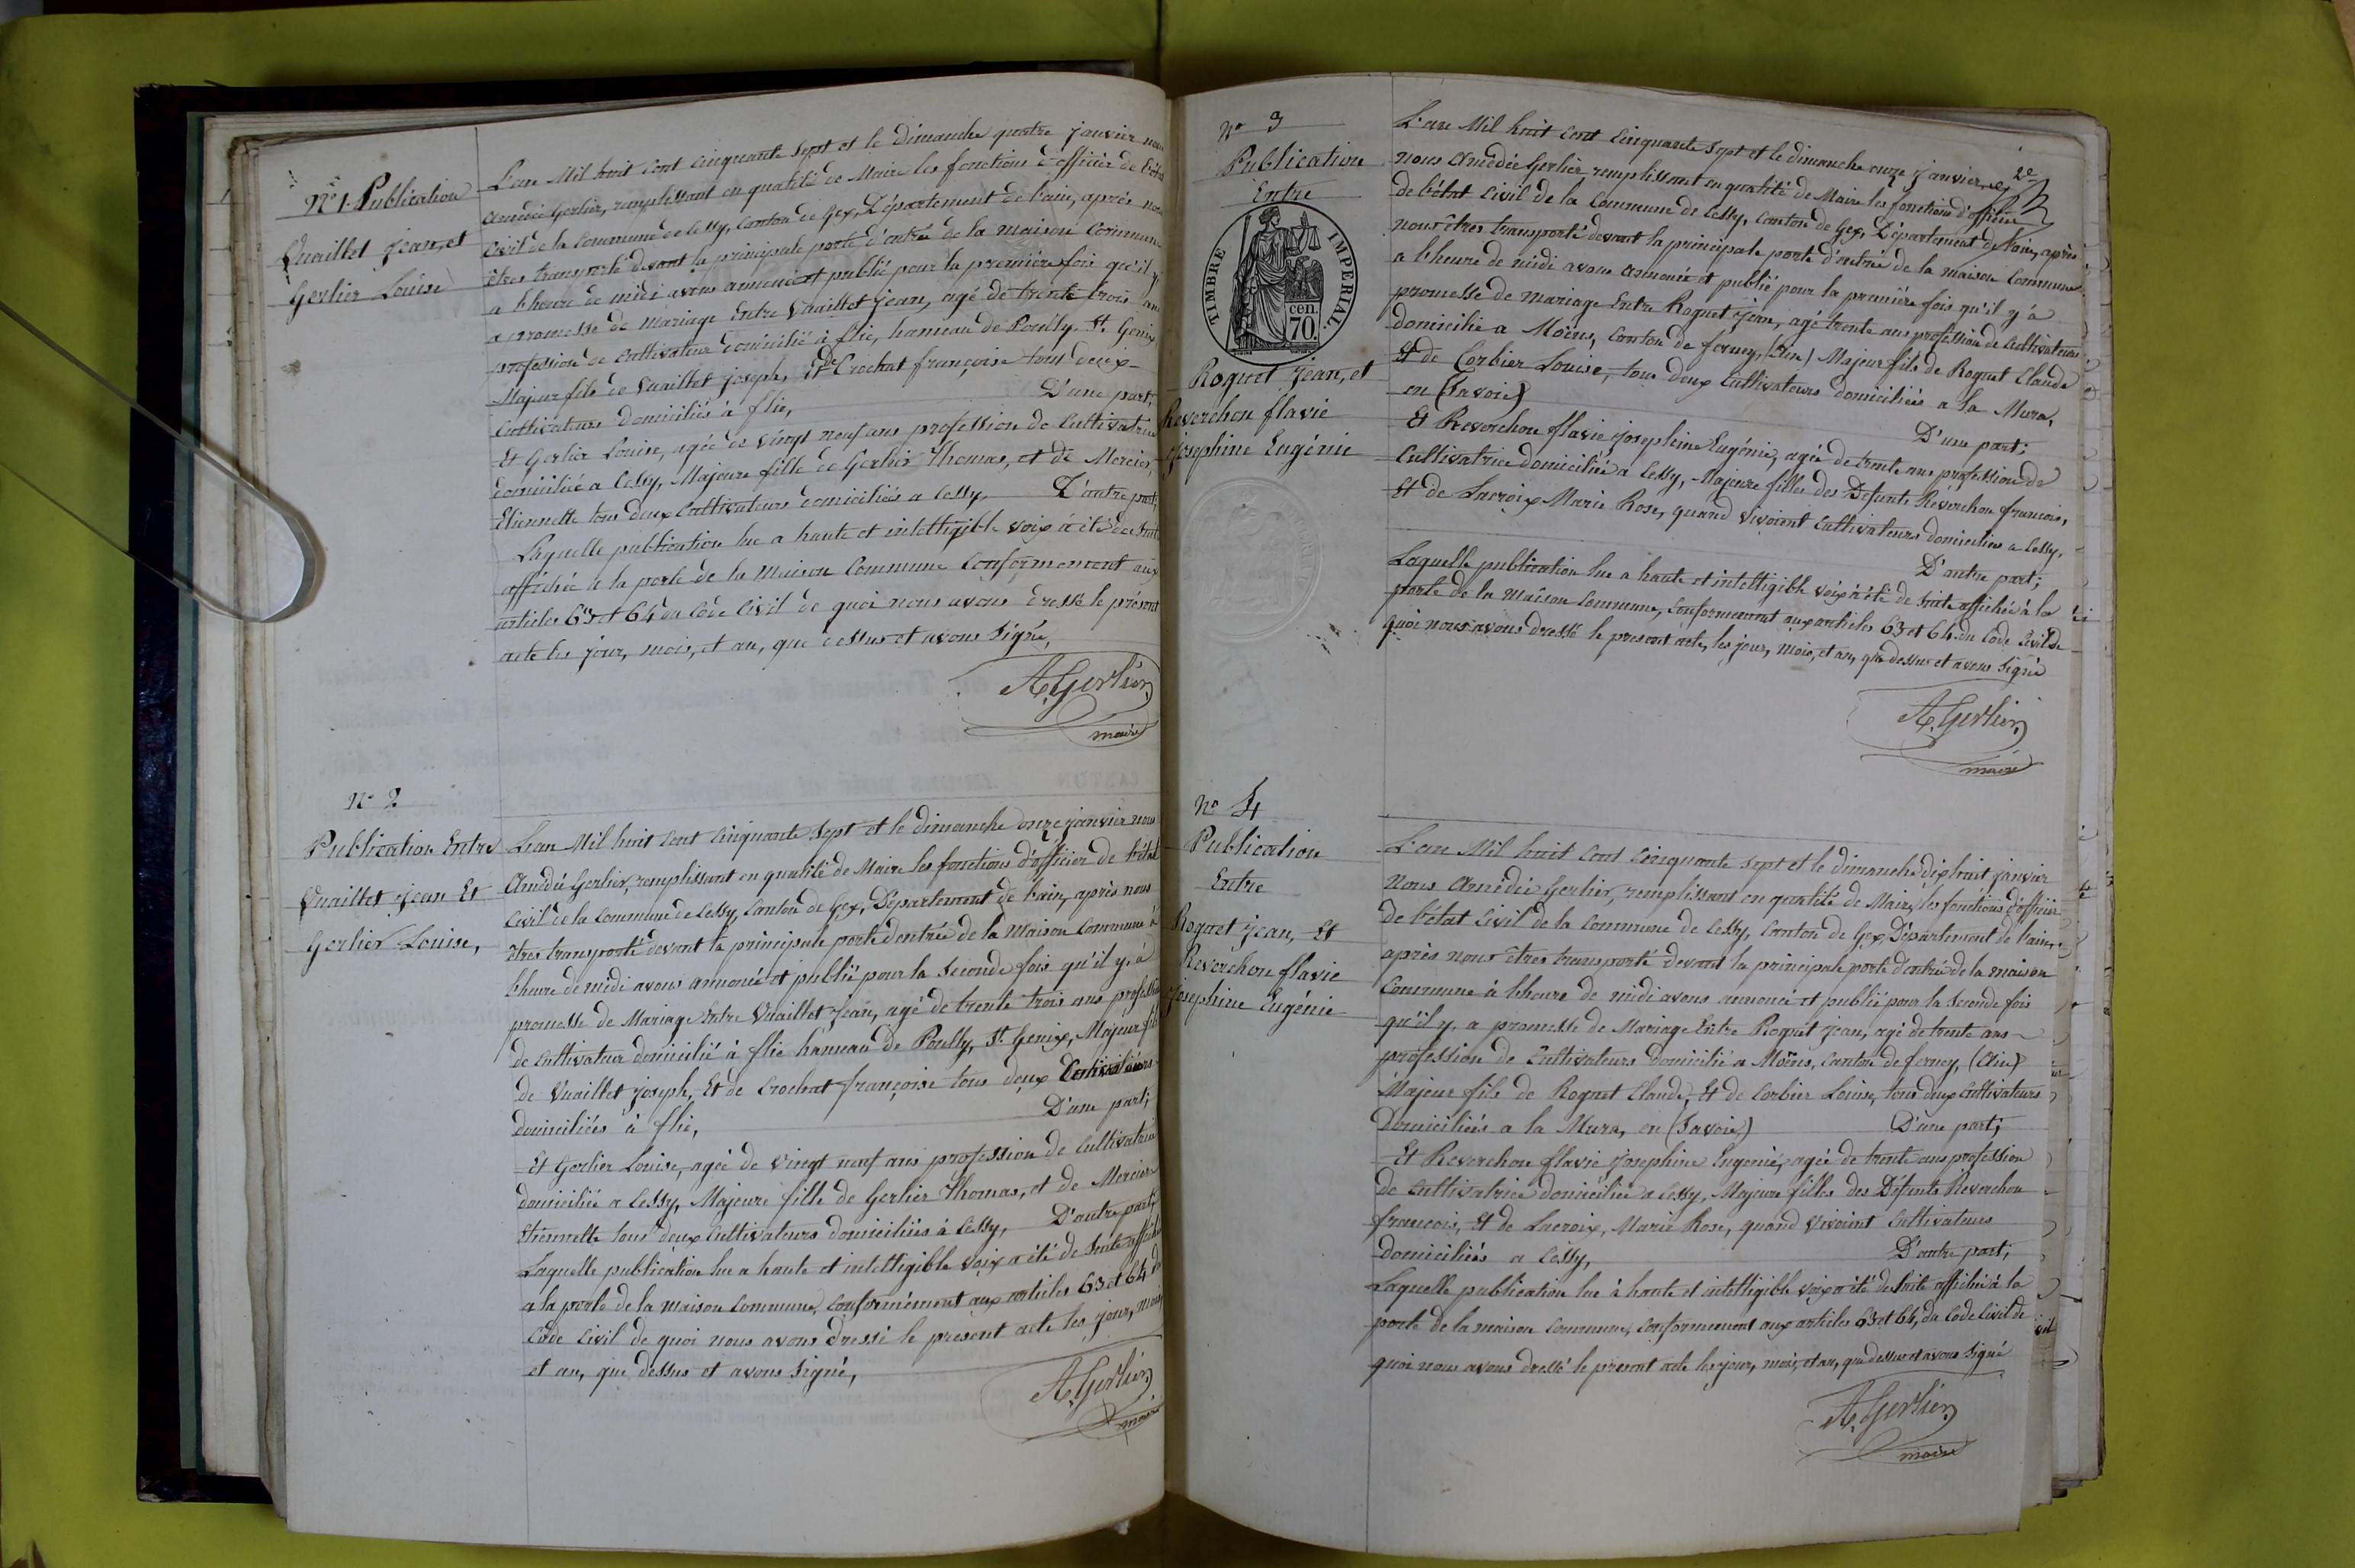 N° 1 Publication
Vuaillet Jean, et
Gerlier Louise
L'an Mil huit Cent Cinquante Sept et le dimanche quatre janvier nous
Amédée Gerlier, remplissant en qualité de Maire les fonctions d'officier de l'état
Civil de la Commune de Cessy, Canton de Gex, Département de l'ain, après nous
êtres transporté devant la principale porte d'entrée de la maison Commune
a l'heure de midi avons annoncé et publié pour la première fois qu'il y
a promesse de Mariage Entre Vuaillet Jean, agé de trente trois ans
profession de Cultivateur domicilié à flie, hameau de Pouilly, St. Genix
Majeur fils de Vuaillet Joseph, Et de Crochat françoise tous deux
Cultivateurs domiciliés à flie, D'une part;
Et Gerlier Louise, agée de vingt neuf ans profession de Cultivatrice
domiciliée a Cessy, Majeure fille de Gerlier Thomas, et de Mercier,
Etiennette tous deux Cultivateurs domiciliés a Cessy, D'autre part,
Laquelle publication lue a haute et intelligible voix à été de suite
affichée à la porte de la Maison Commune Conformément aux
articles 63 et 64 du Code Civil de quoi nous avons dressé le présent
acte les jour, mois, et an, que dessus et avons Signé,
A. Gerlier
maire
N° 2
Publication Entre
Vuaillet Jean Et
Gerlier Louise,
L'an Mil huit Cent Cinquante Sept et le dimanche onze janvier nous
Amédée Gerlier, remplissant en qualité de Maire les fonctions d'officier de l'état
Civil de la Commune de Cessy, Canton de Gex, Département de l'ain, après nous
êtres transporté devant la principale porte d'entrée de la Maison Commune à
l'heure de midi avons annoncé et publié pour la Seconde fois qu'il y à
promesse de Mariage Entre Vuaillet Jean, agé de trente trois ans profession
de Cultivateur domicilié à flie hameau de Pouilly, St Genix, Majeur fils
de Vuaillet Joseph, Et de Crochat françoise tous deux Cultivateurs
domiciliés à flie, D'une part;
Et Gerlier Louise, agée de vingt neuf ans profession de Cultivatrice
domiciliée a Cessy, Majeure fille de Gerlier Thomas, et de Mercier
Etiennette tous deux Cultivateurs domiciliés à Cessy, D'autre part;
Laquelle publication lue a haute et intelligible voix a été de suite affichée
a la porte de la Maison Commune, Conformément aux articles 63 et 64 du
Code Civil de quoi nous avons dressé le présent acte les jour, mois,
et an, que dessus et avons Signé,
A. Gerlier
maire
N° 3
Publication
Entre
TIMBRE IMPERIAL.
70. cen.
Roquet Jean, et
Reverchon flavie
Josephine Eugénie
2e
L'an Mil huit Cent Cinquante Sept et le dimanche onze janvier,
nous Amédée Gerlier remplissant en qualité de Maire les fonctions d'officier
de l'état Civil de la Commune de Cessy, Canton de Gex, Département de l'ain, après
nous êtres transporté devant la principale porte d'entrée de la maison Commune
a l'heure de midi avons annoncé et publié pour la première fois qu'il y à
promesse de Mariage Entre Roquet Jean, agé trente ans profession de Cultivateurs
domicilié a Moëns, Canton de ferney, (Ain) Majeur fils de Roquet Claude
Et de Corbier Louise, tous deux Cultivateurs domiciliés a la Mura,
en (Savoie) D'une part;
Et Reverchon flavie Josephine Eugénie, agée de trente ans profession de
Cultivatrice domiciliée a Cessy, Majeure filles des Défunts Reverchon francois,
Et de Lacroix Marie Rose, quand vivoient Cultivateurs domiciliés a Cessy,
D'autre part;
Laquelle publication lue a haute et intelligible voix à été de suite affichée à la
porte de la Maison Commune, Conformément aux articles 63 et 64 du Code Civil de
quoi nous avons dressé le present acte, les jour, mois, et an, que dessus et avons Signé
A. Gerlier
maire
N° 4
Publication
Entre
Roquet Jean, Et
Reverchon flavie
Josephine Eugénie
L'an Mil huit Cent Cinquante Sept et le dimanche dix huit janvier
Nous Amédée Gerlier, remplissant en qualité de Maire, les fonctions d'officier
de l'état Civil de la Commune de Cessy, Canton de Gex, Département de l'ain,
après nous êtres transporté devant la principale porte d'entrée de la maison
Commune à l'heure de midi avons annoncé et publié pour la Seconde fois
qu'il y a promesse de Mariage Entre Roquet Jean, agé de trente ans
profession de Cultivateurs domicilié a Moëns, Canton de ferney, (Ain)
Majeur fils de Roquet Claude, Et de Corbier Louise, tous deux Cultivateurs
Domiciliés a la Mura, en (Savoie) D'une part;
Et Reverchon flavie Josephine Eugenie, agée de trente ans profession
de Cultivatrice domiciliée a Cessy, Majeure filles des Défunts Reverchon
francois, Et de Lacroix, Marie Rose, quand vivoient Cultivateurs
domiciliés a Cessy, D'autre part;
Laquelle publication lue à haute et intelligible voix a été de suite affichée à la
porte de la maison Commune, Conformément aux articles 63 et 64, du Code Civil de
quoi nous avons dressé le présent acte les jour, mois, et an, que dessus et avons Signé
A. Gerlier
maire